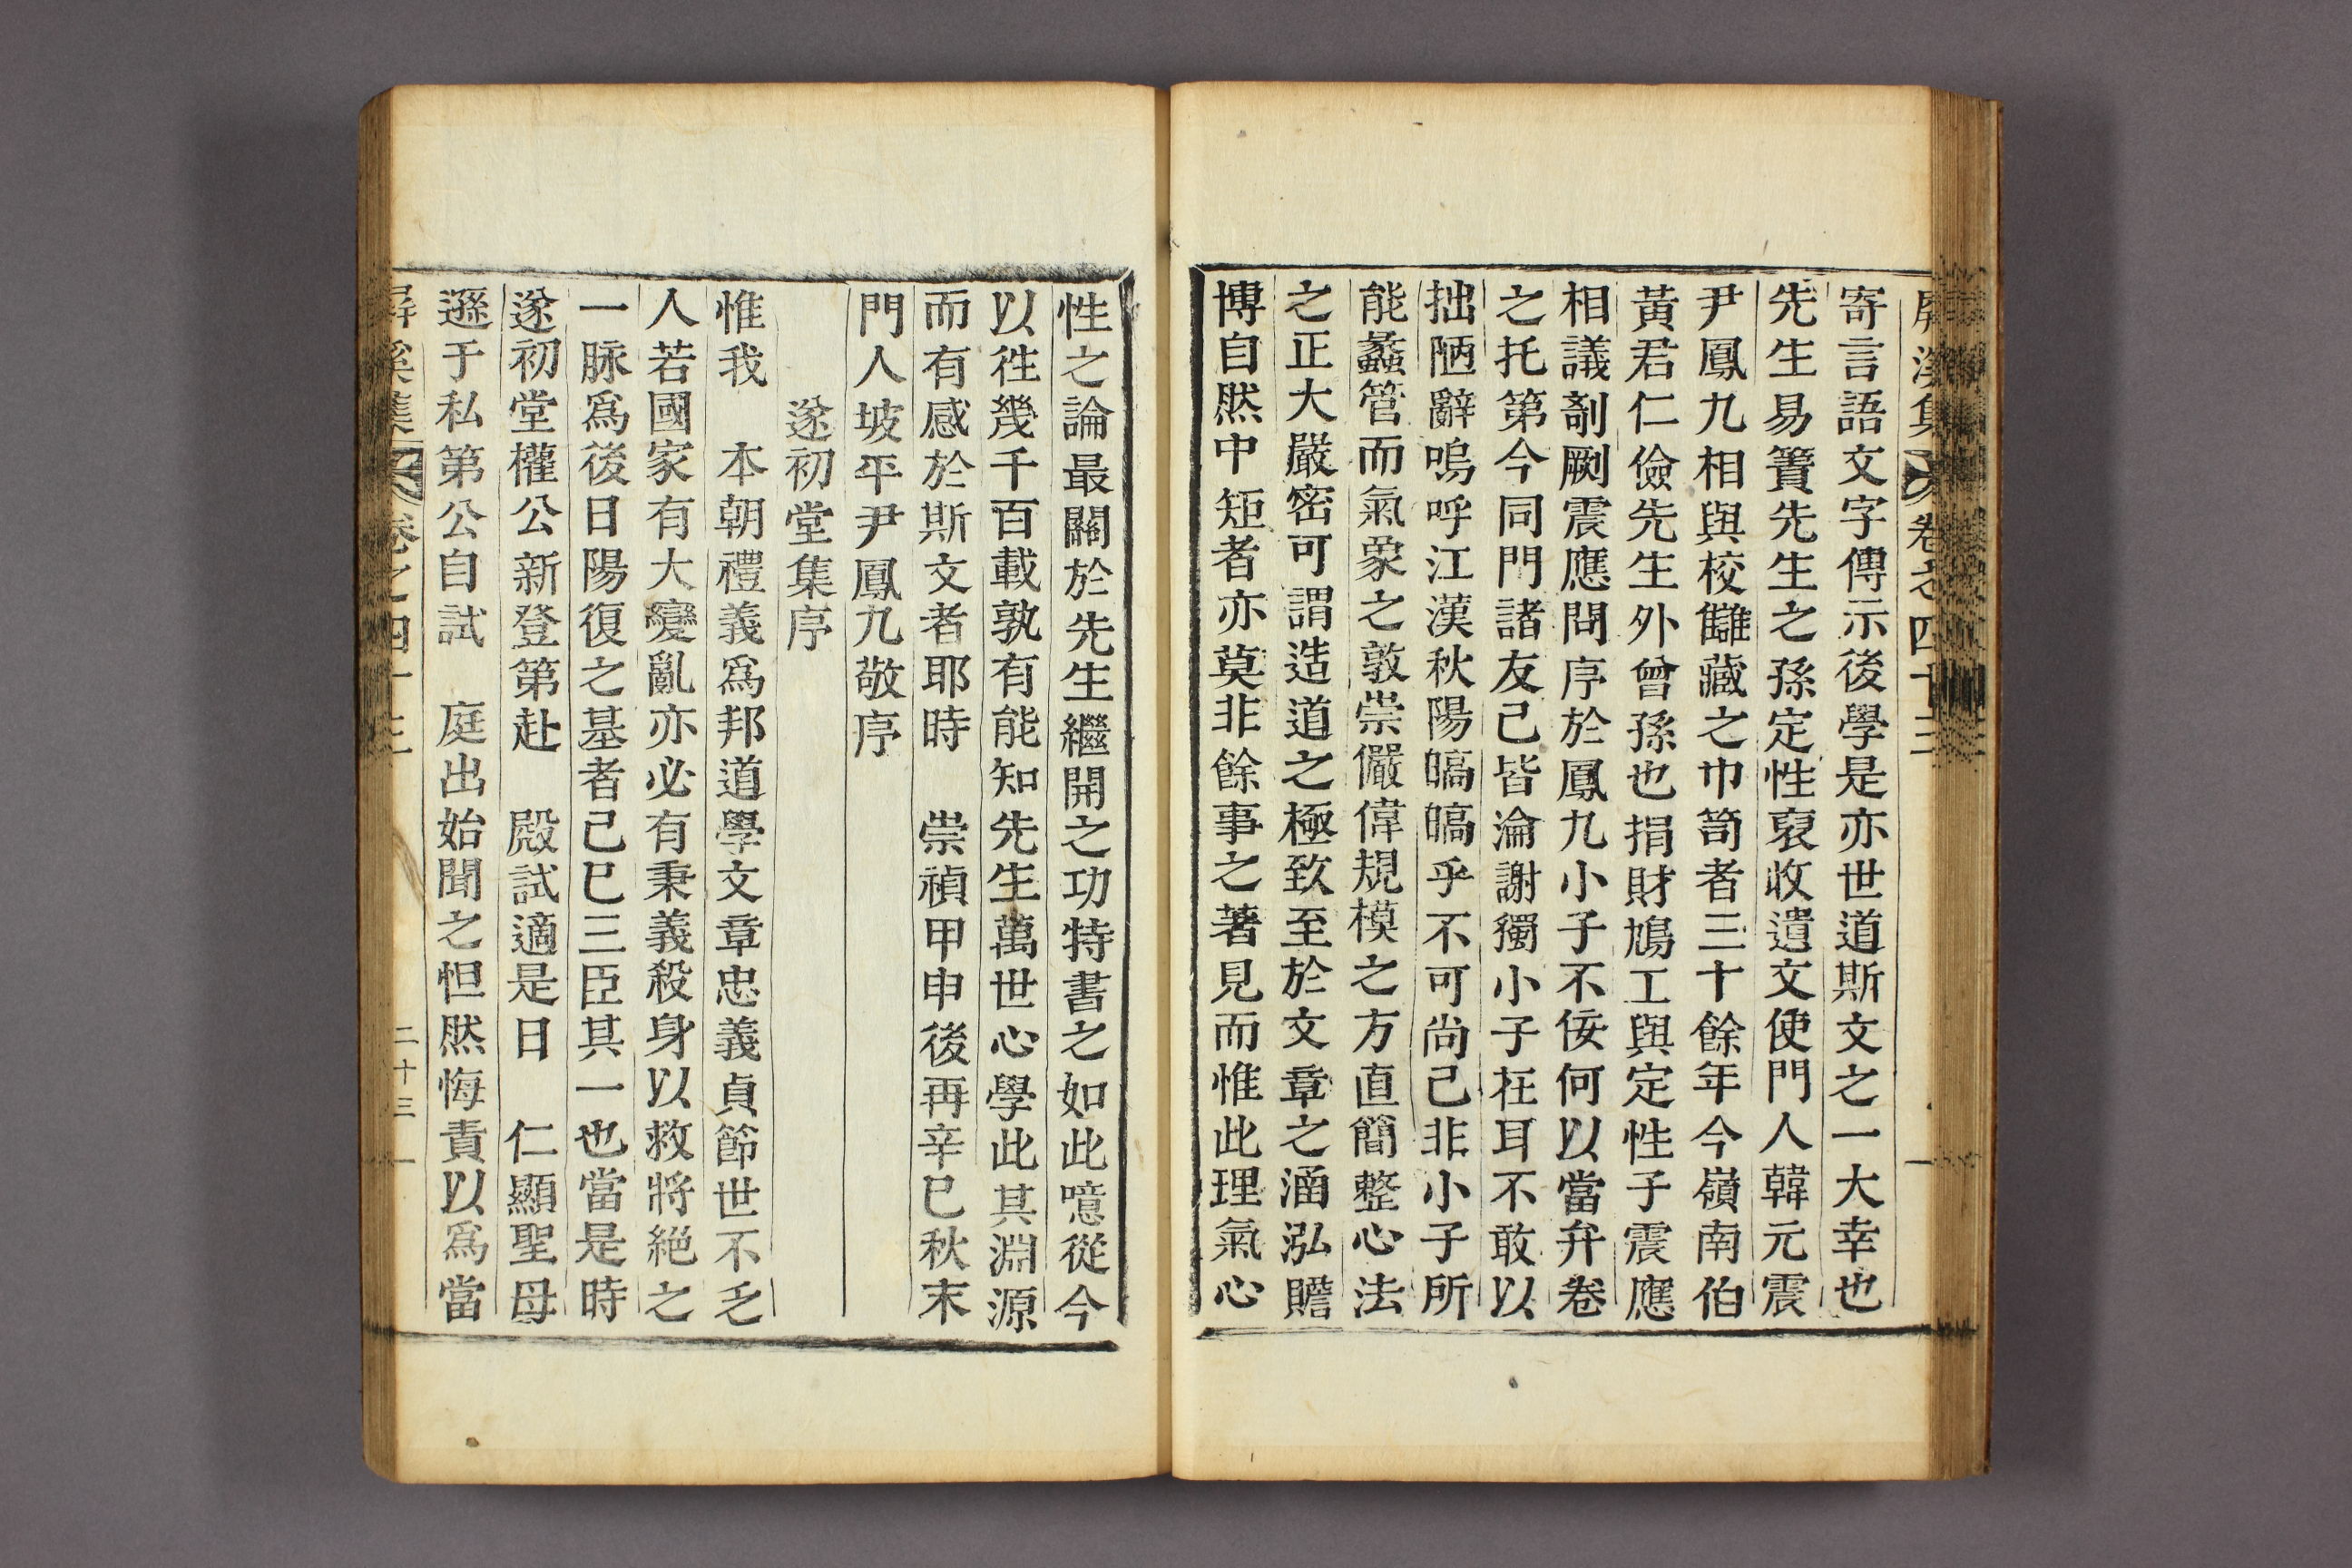 屛溪集 卷之四十三
寄言語文字傳示後學是亦世道斯文之一大幸也
先生易簀先生之孫定性裒收遺文使門人韓元震
尹鳳九相與校讎藏之巾笥者三十餘年今嶺南伯
黃君仁儉先生外曾孫也捐財鳩工與定性子震應
相議剞劂震應問序於鳳九小子不佞何以當弁卷
之托第今同門諸友已皆淪謝獨小子在耳不敢以
拙陋辭嗚呼江漢秋陽皜皜乎不可尙已非小子所
能蠡管而氣象之敦崇儼偉規模之方直簡整心法
之正大嚴密可謂造道之極致至於文章之涵泓贍
博自然中矩者亦莫非餘事之著見而惟此理氣心
性之論最關於先生繼開之功特書之如此噫從今
以徃幾千百載孰有能知先生萬世心學此其淵源
而有感於斯文者耶時 崇禎甲申後再辛巳秋末
門人坡平尹鳳九敬序
遂初堂集序
惟我 本朝禮義爲邦道學文章忠義貞節世不乏
人若國家有大變亂亦必有秉義殺身以救將絶之
一脉爲後日陽復之基者己巳三臣其一也當是時
遂初堂權公新登第赴 殿試適是日 仁顯聖母
遜于私第公自試 庭出始聞之怛然悔責以爲當
屛溪集 卷之四十三 二十三